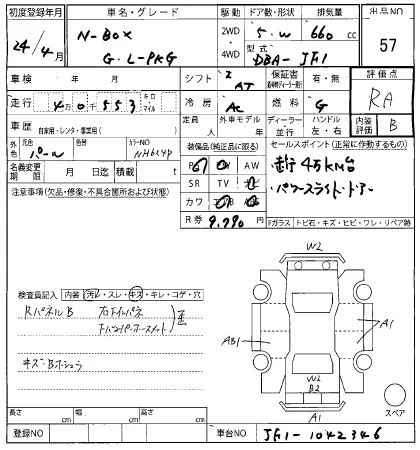 初度登録年月 車名・グレード 駆動 ドア数・形状 排気量 出品NO
24/4月 N-BOX 2WD 5.W 660cc 57
G・L-PKG 4WD 型式 DBA-JF1
車検 年 月 シフト AT 保証書 有・無 評価点
走行 4万0千553 キロ・マイル 冷房 AC 燃料 G RA
車歴 自家用・レンタ・事業用( ) 定員 人 外車モデル 年 ディーラー 並行 ハンドル 左・右 内装評価 B
外色 元色 パール 色替 カラーNO NH624P 装備品(純正品に限る) セールスポイント(正常に作動するもの)
名義変更期限 月 日迄 積載 t AW ・走行4万KM台
注意事項(欠品・修復・不具合箇所および状態) SR TV ・パワースライドドアー
カワ
R券 9,790 Fガラス トビ石・キズ・ヒビ・ワレ・リペア跡
W2
検査員記入 内装 汚れ・スレ・キズ・キレ・コゲ・穴
RパネルB
AB1 A1
キズ・Bホシュウ
W2
B2
A1 スペア
長さ cm 幅 cm 高さ cm
登録NO 車台NO JF1-1042346